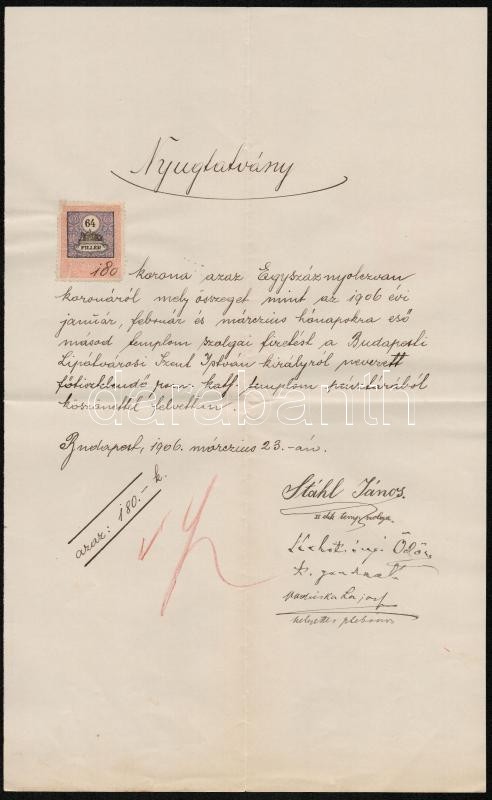 Nyugtatvány
64
FILLÉR
180 korona azaz Egyszáznyolczvan
koronáról mely összeget mint az 1906 évi
január, február és márczius hónapokra eső
másod templom szolgai fizetést a Budapesti
Lipótvárosi Szent István királyról nevezett
főtisztelendő rom. kath. templom pénztárából
köszönettel felvettem.
Budapest, 1906. márczius 23.-án.
azaz: 180.- k.
Stáhl János.
II dik temp. szolga.
Ödön
t. gondnok
Lajos
helyettes plébános
darabanth